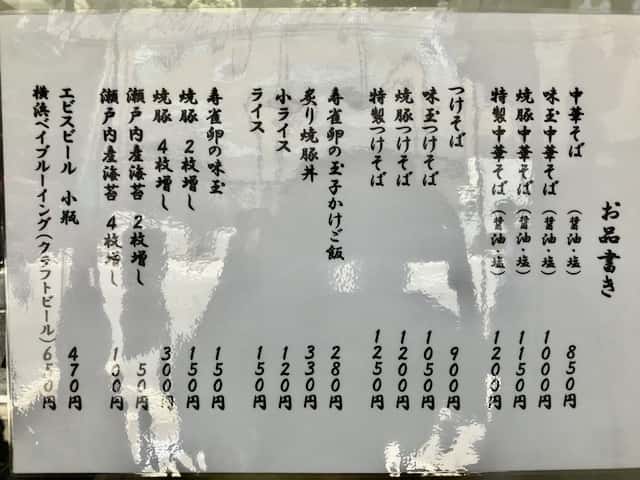 お品書き
中華そば (醤油・塩) 850円
味玉中華そば (醤油・塩) 1000円
焼豚中華そば (醤油・塩) 1150円
特製中華そば (醤油・塩) 1200円
つけそば 900円
味玉つけそば 1050円
焼豚つけそば 1200円
特製つけそば 1250円
寿雀卵の玉子かけご飯 280円
炙り焼豚丼 330円
小ライス 120円
ライス 150円
寿雀卵の味玉 150円
焼豚 2枚増し 150円
焼豚 4枚増し 300円
瀬戸内産海苔 2枚増し 50円
瀬戸内産海苔 4枚増し 100円
ヱビスビール 小瓶 470円
横浜ベイブルーイング(クラフトビール) 650円